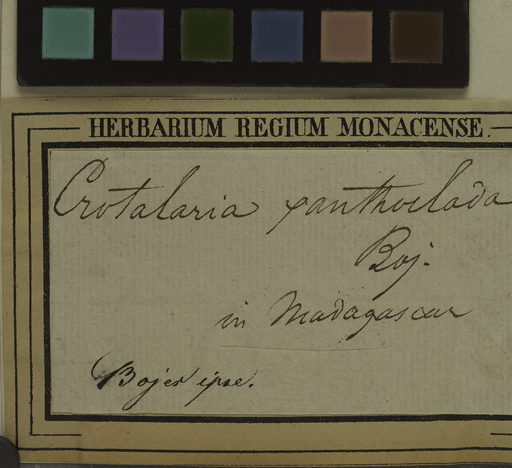 HERBARIUM REGIUM MONACENSE.
Crotalaria xanthoclada
Boj.
in Madagascar
Bojer ipse.